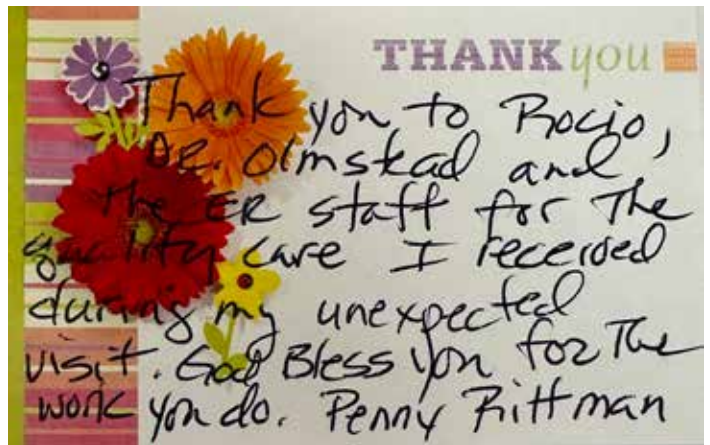 THANK you
Thank you to Rocio,
DR. Olmstead and
the ER staff for The
quality care I received
during my unexpected
visit. God Bless you for The
work you do. Penny Rittman